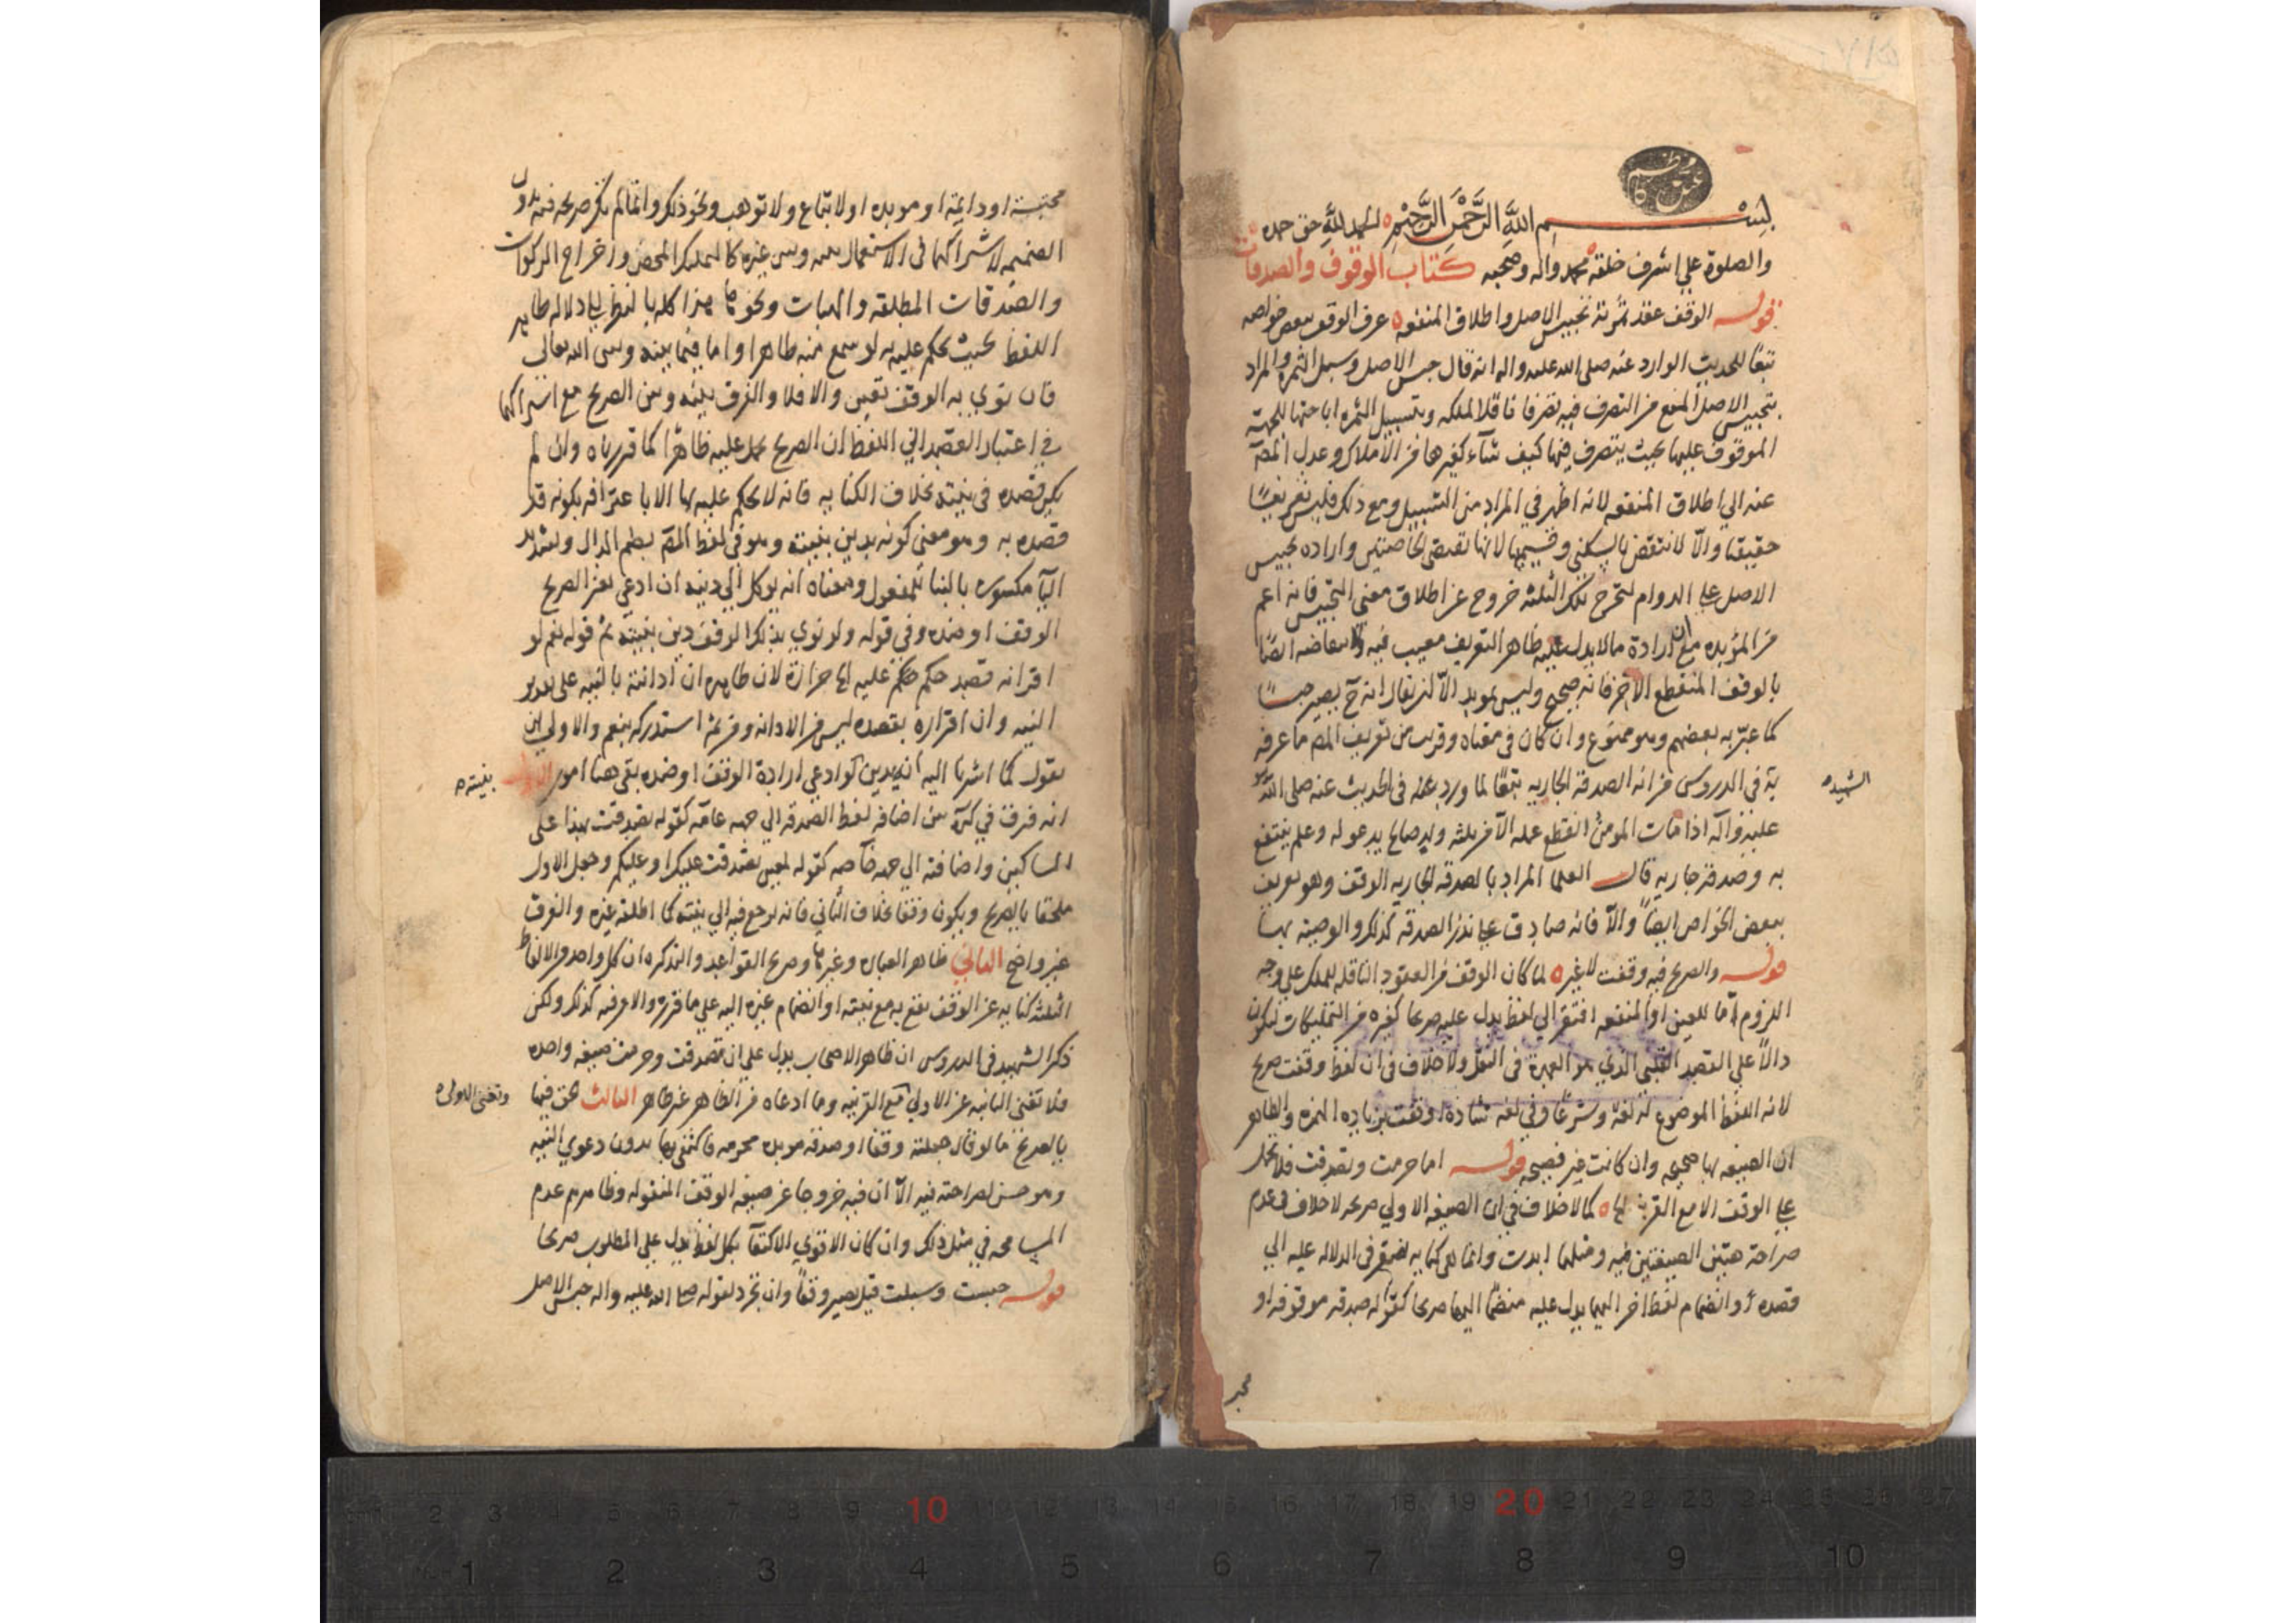 بسم الله الرحمن الرحيم الحمد لله حق حمده
والصلوة علي اشرف خلقه محمد واله وصحبه كتاب الوقوف والصدقات
قوله الوقف عقد ثمرته تحبيس الاصل واطلاق المنفعه عرف الوقف ببعض خواصه
تبعًا للحديث الوارد عنه صلى الله عليه واله انه قال حبس الاصل وسبل الثمره والمراد
بتحبيس الاصل المنع من التصرف فيه تصرفا ناقلا لملكه وبتسبيل الثمره اباحتها للجهة
الموقوف عليها بحيث يتصرف فيها كيف شآء كغيرها من الاملاك وعدل المصَ
عنه الي اطلاق المنفعه لانه اظهر في المراد من التسبيل ومع ذلك فليس تعريفًا
حقيقيا والّا لانتقض بالسكني وقسيميها لانها تقتضي الخاصتين واراده تحبيس
الاصل علي الدوام لتخرج تلك الثلثه خروج عن اطلاق معني التحبيس فانه اعم
من المؤبده مع ان ارادة مالا يدل عليه ظاهر التعريف معيب فيه ولانتقاضه ايضًا
بالوقف المنقطع الآخر فانه صحيح وليس بموبد الّا ان يقال انه حَ يصير حبسًا
كما عبّر به بعضهم وهو ممنوع وان كان في معناه وقريب من تعريف المص ما عرفه
به في الدروس من انه الصدقة الجاريه تبعًا لما ورد عنه في الحديث عنه صلى الله
الشهيد
عليه وآله اذا مات المومن انقطع عمله الّا من ثلثه ولد صالح يدعو له وعلم ينتفع
به وصدقه جاريه قال العلما المراد بالصدقه الجاريه الوقف وهو تعريف
ببعض الخواص ايضًا والّا فانه صادق علي نذر الصدقه كذلك والوصيه بها
قوله والصريح فيه وقفت لا غير لما كان الوقف من العقود الناقله للملك علي وجه
اللزوم امّا للعين او المنفعه افتقر الي لفظ يدل عليه صريحا كغيره من التمليكات ليكون
دالّا علي القصد القلبي الذي هو العمدة في النقل ولا خلاف في ان لفظ وقفت صريح
لانه اللفظ الموضوع له لغة وشرعًا وفي لغه شاذه اوقفت بزياده الهمزه والظاهر
ان الصيغه بها صحيحه وان كانت غير فصيحه قوله اما حرمت وتصدقت فلا يحمل
علي الوقف الا مع القرينه كما لا خلاف في ان الصيغه الاولي صريحه لا خلاف في عدم
صراحة هتين الصيغتين فيه ومثلهما ابدت وانما هي كنايه تفتقر في الدلاله عليه الي
قصده او انضمام لفظ اخر اليها يدل عليه منضمًا اليها صريحا كقوله صدقه موقوفه او
محبسة او دايمة او موبده او لا تباع ولا توهب ونحو ذلك وانما لم يكن صريحه فيه بدون
الضميمه لاشتراكها في الاستعمال بينه وبين غيره كالتمليك المحض واخراج الزكوات
والصدقات المطلقه والهبات ونحوها هذا كله بالنظر الي دلاله ظاهر
اللفظ بحيث يحكم عليه به لو سمع منه ظاهرا واما فيما بينه وبين الله تعالي
فان نوي به الوقف تعين والا فلا والفرق بينه وبين الصريح مع اشتراكهما
في اعتبار القصد الي اللفظ ان الصريح يحمل عليه ظاهرًا كما قررناه وان لم
يكن قصده في نيته بخلاف الكنايه فانه لا يحكم عليه بها الا باعترافه بكونه قد
قصده به وهو معني كونه يدين بنيته وهو في لفظ المصَ بضم الدال وتشديد
اليآ مكسوره بالبنا للمفعول ومعناه انه يوكل الي دينه ان ادعي بغير الصريح
الوقف او ضده وفي قوله ولو نوي بذلك الوقف دين بنيته ثم قوله نعم لو
اقر انه قصد حكم حكم عليه بها حزازة لان ظاهره ان ادانته بالنيه على تقدير
النيه وان اقراره بقصده ليس من الادانه ومن ثم استدركه بنعم والاولي ان
يقول كما اشرنا اليه انه يدين لو ادعي ارادة الوقف او ضده بقي هنا امور الاول
بنيته
انه فرق في كره بين اضافه لفظ الصدقه الي جهه عامّه كقوله تصدقت بهذا علي
المساكين واضافته الي جهه خاصه كقوله لمعين تصدقت عليك او عليكم وجعل الاول
ملحقا بالصريح ويكون وقفا بخلاف الثاني فانه يرجع فيه الي نيته كما اطلقه غيره والفرق
غير واضح الثاني ظاهر العباره وغيرها وصريح القواعد والتذكره ان كل واحد من الالفاظ
الثلثه كنايه عن الوقف يقع به مع نيته او انضمام غيره اليه علي ما قرر والامر فيه كذلك ولكن
ذكر الشهيد في الدروس ان ظاهر الاصحاب يدل علي ان تصدقت وحرمت صيغه واحده
فلا تغني الثانيه عن الاولي مع القرينه وما ادعاه من الظاهر غير ظاهر الثالث
وتغني الاولي
بالصريح ما لو قال جعلته وقفا او صدقه موبده محرمه فاكتفي بها بدون دعوي النيه
وهو حسن لصراحته فيه الّا ان فيه خروجا عن صيغه الوقف المنقوله وظاهرهم عدم
المسامحه في مثل ذلك وان كان الاقوي الاكتفآ بكل لفظ يدل علي المطلوب صريحا
قوله حبست وسبلت قيل يصير وقفًا وان تجرد لقوله صلى الله عليه واله حبس الاصل